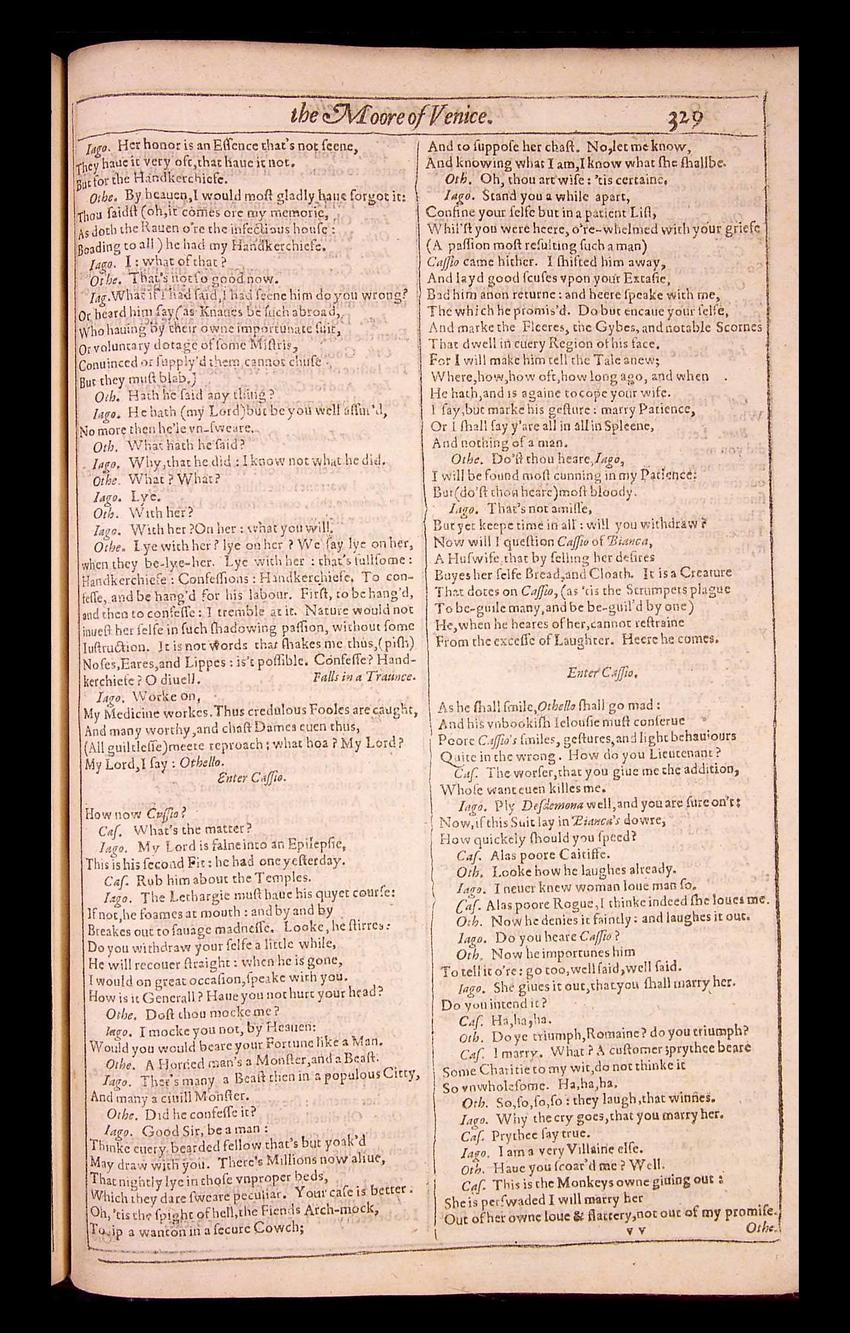 the Moore of Venice. 329
Iago. Her honor is an Essence that's not seene,
They haue it very oft, that haue it not.
But for the Handkerchiefe.
Othe. By heauen, I would most gladly haue forgot it:
Thou saidst (oh, it comes ore my memorie,
As doth the Rauen o're the infectious house:
Boading to all) he had my Handkerchiefe.
Iago. I: what of that?
Othe. That's not so good now.
Iag. What if I had said, I had seene him do you wrong?
Or heard him say (as Knaues be such abroad,
Who hauing by their owne importunate suit,
Or voluntary dotage of some Mistris,
Conuinced or supply'd them, cannot chuse
But they must blab.)
Oth. Hath he said any thing?
Iago. He hath (my Lord) but be you well assur'd,
No more then he'le vn-sweare.
Oth. What hath he said?
Iago. Why, that he did: I know not what he did.
Othe. What? What?
Iago. Lye.
Oth. With her?
Iago. With her? On her: what you will.
Othe. Lye with her? lye on her? We say lye on her,
when they be-lye-her. Lye with her: that's fullsome:
Handkerchiefe: Confessions: Handkerchiefe. To con-
fesse, and be hang'd for his labour. First, to be hang'd,
and then to confesse: I tremble at it. Nature would not
inuest her selfe in such shadowing passion, without some
Instruction. It is not words that shakes me thus, (pish)
Noses, Eares, and Lippes: is't possible. Confesse? Hand-
kerchiefe? O diuell. Falls in a Traunce.
Iago. Worke on,
My Medicine workes. Thus credulous Fooles are caught,
And many worthy, and chast Dames euen thus,
(All guiltlesse) meete reproach; what hoa? My Lord?
My Lord, I say: Othello.
Enter Cassio.
How now Cassio?
Cas. What's the matter?
Iago. My Lord is falne into an Epilepsie,
This is his second Fit: he had one yesterday.
Cas. Rub him about the Temples.
Iago. The Lethargie must haue his quyet course:
If not, he foames at mouth: and by and by
Breakes out to sauage madnesse. Looke, he stirres:
Do you withdraw your selfe a little while,
He will recouer straight: when he is gone,
I would on great occasion, speake with you.
How is it Generall? Haue you not hurt your head?
Othe. Dost thou mocke me?
Iago. I mocke you not, by Heauen:
Would you would beare your Fortune like a Man.
Othe. A Horned man's a Monster, and a Beast.
Iago. Ther's many a Beast then in a populous Citty,
And many a ciuill Monster.
Othe. Did he confesse it?
Iago. Good Sir, be a man:
Thinke euery bearded fellow that's but yoak'd
May draw with you. There's Millions now aliue,
That nightly lye in those vnproper beds,
Which they dare sweare peculiar. Your case is better.
Oh, 'tis the spight of hell, the Fiends Arch-mock,
To lip a wanton in a secure Cowch;
And to suppose her chast. No, let me know,
And knowing what I am, I know what she shallbe.
Oth. Oh, thou art wise: 'tis certaine.
Iago. Stand you a while apart,
Confine your selfe but in a patient List,
Whil'st you were heere, o're-whelmed with your griefe
(A passion most resulting such a man)
Cassio came hither. I shifted him away,
And layd good scuses vpon your Extasie,
Bad him anon returne: and heere speake with me,
The which he promis'd. Do but encaue your selfe,
And marke the Fleeres, the Gybes, and notable Scornes
That dwell in euery Region of his face.
For I will make him tell the Tale anew;
Where, how, how oft, how long ago, and when
He hath, and is againe to cope your wife.
I say, but marke his gesture: marry Patience,
Or I shall say y'are all in all in Spleene,
And nothing of a man.
Othe. Do'st thou heare, Iago,
I will be found most cunning in my Patience:
But (do'st thou heare) most bloody.
Iago. That's not amisse,
But yet keepe time in all: will you withdraw?
Now will I question Cassio of Bianca,
A Huswife that by selling her desires
Buyes her selfe Bread, and Cloath. It is a Creature
That dotes on Cassio, (as 'tis the Strumpets plague
To be-guile many, and be be-guil'd by one)
He, when he heares of her, cannot restraine
From the excesse of Laughter. Heere he comes.
Enter Cassio.
As he shall smile, Othello shall go mad:
And his vnbookish Ielousie must conserue
Poore Cassio's smiles, gestures, and light behauiours
Quite in the wrong. How do you Lieutenant?
Cas. The worser, that you giue me the addition,
Whose want euen killes me.
Iago. Ply Desdemona well, and you are sure on't:
Now, if this Suit lay in Bianca's dowre,
How quickely should you speed?
Cas. Alas poore Caitiffe.
Oth. Looke how he laughes already.
Iago. I neuer knew woman loue man so.
Cas. Alas poore Rogue, I thinke indeed she loues me.
Oth. Now he denies it faintly: and laughes it out.
Iago. Do you heare Cassio?
Oth. Now he importunes him
To tell it o're: go too, well said, well said.
Iago. She giues it out, that you shall marry her.
Do you intend it?
Cas. Ha, ha, ha.
Oth. Do ye triumph, Romaine? do you triumph?
Cas. I marry. What? A customer; prythee beare
Some Charitie to my wit, do not thinke it
So vnwholesome. Ha, ha, ha.
Oth. So, so, so, so: they laugh, that winnes.
Iago. Why the cry goes, that you marry her.
Cas. Prythee say true.
Iago. I am a very Villaine else.
Oth. Haue you scoar'd me? Well.
Cas. This is the Monkeys owne giuing out:
She is perswaded I will marry her
Out of her owne loue & flattery, not out of my promise.
v v Othe.